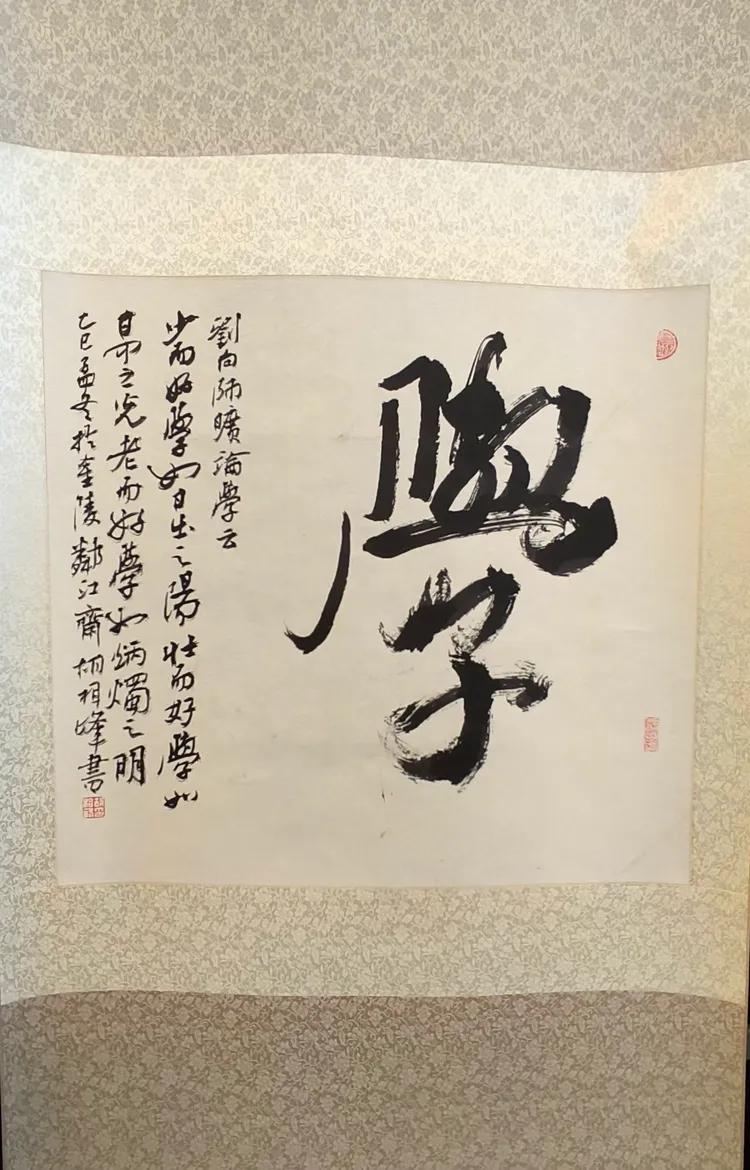 學
劉向師曠論學云
少而好學如日出之陽壯而好學如
日中之光老而好學如炳燭之明
乙巳孟冬於金陵鄰江齋胡相峰書